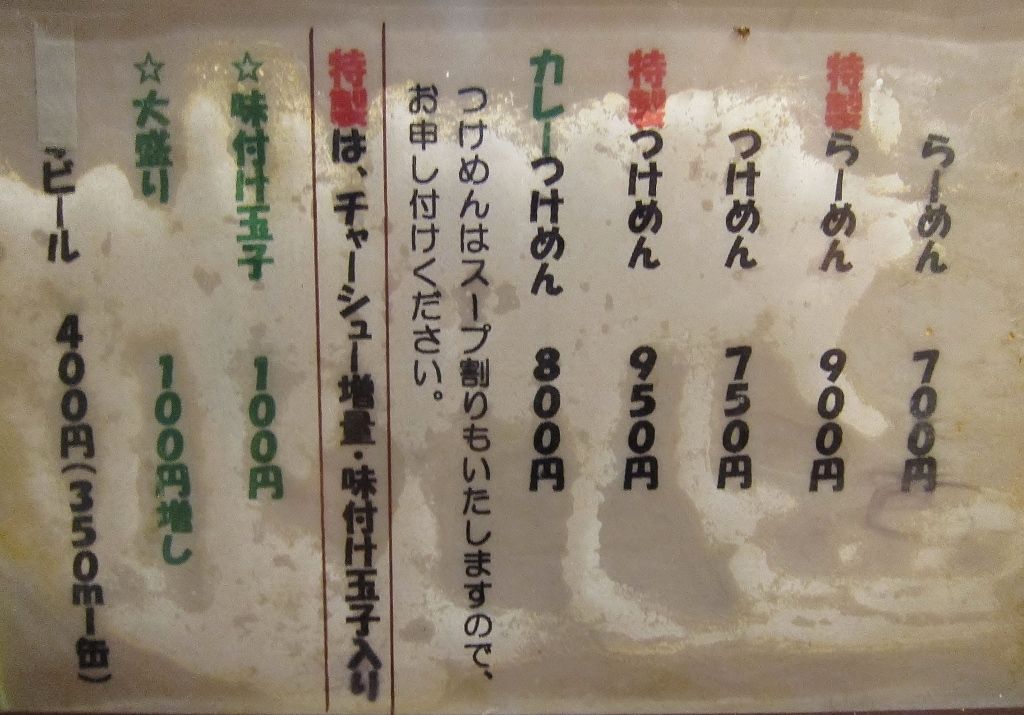 らーめん 700円
特製らーめん 900円
つけめん 750円
特製つけめん 950円
カレーつけめん 800円
つけめんはスープ割りもいたしますので、
お申し付けください。
特製は、チャーシュー増量・味付け玉子入り
☆味付け玉子 100円
☆大盛り 100円増し
ビール 400円(350ml缶)